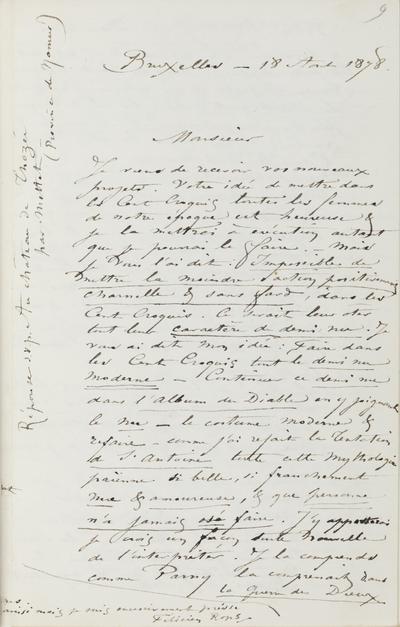 9
Bruxelles – 18 Août 1878.
Monsieur
Je viens de recevoir vos nouveaux
projets. Votre idée de mettre dans
les Cent Croquis toutes les femmes
de notre époque est heureuse &
je la mettrai à exécution autant
que je pourrai le faire. Mais
je vous l'ai dit : Impossible de
mettre la moindre action positivement
charnelle & sans fard, dans les
Cent Croquis. Ce serait leur ôter
tout leur caractère de demi nu. Je
vous ai dit mon idée : Faire dans
les Cent Croquis tout le demi nu
moderne – Continuer ce demi nu
dans l'Album du Diable en y joignant
le nu – le costume moderne &
refaire – comme j'ai refait la Tentation
de St Antoine toute cette Mythologie
païenne si belle, si franchement
nue & amoureuse, & que personne
n'a jamais osé faire. J'y apporterai
je crois une façon toute nouvelle
de l'interpréter. Je la comprends
comme Parny la comprenait dans
la Guerre des Dieux.
Réponse svp. au château de Thozée
par Mettet
(Province de Namur)
mais je suis
Félicien Rops